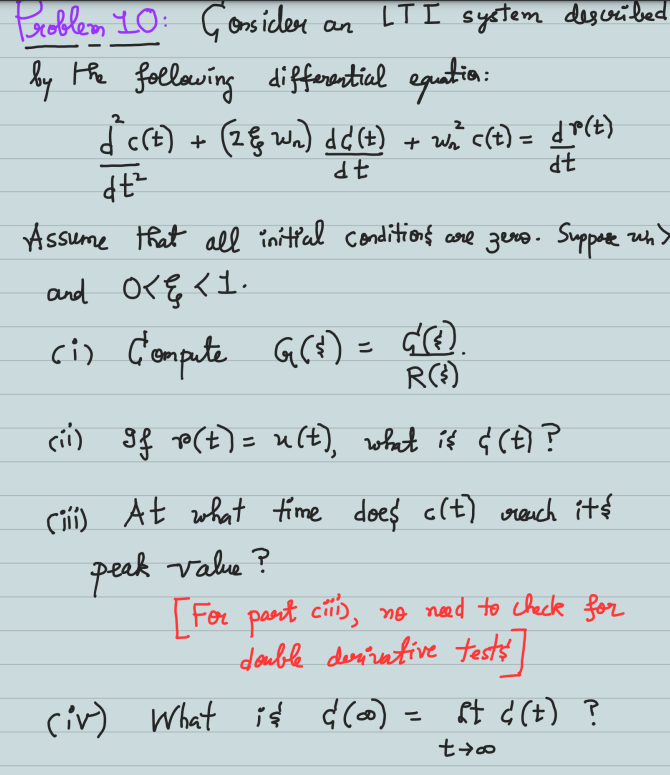 Problem 10: Consider an LTI system described
by the following differential equation:
d² c(t)/dt² + (2ξ ωₙ) dc(t)/dt + ωₙ² c(t) = d r(t)/dt
Assume that all initial conditions are zero. Suppose ωₙ >
and 0 < ξ < 1.
(i) Compute G(s) = C(s)/R(s).
(ii) If r(t) = u(t), what is c(t)?
(iii) At what time does c(t) reach its
peak value?
[For part (iii), no need to check for
double derivative tests]
(iv) What is c(∞) = lt c(t) ?
t→∞